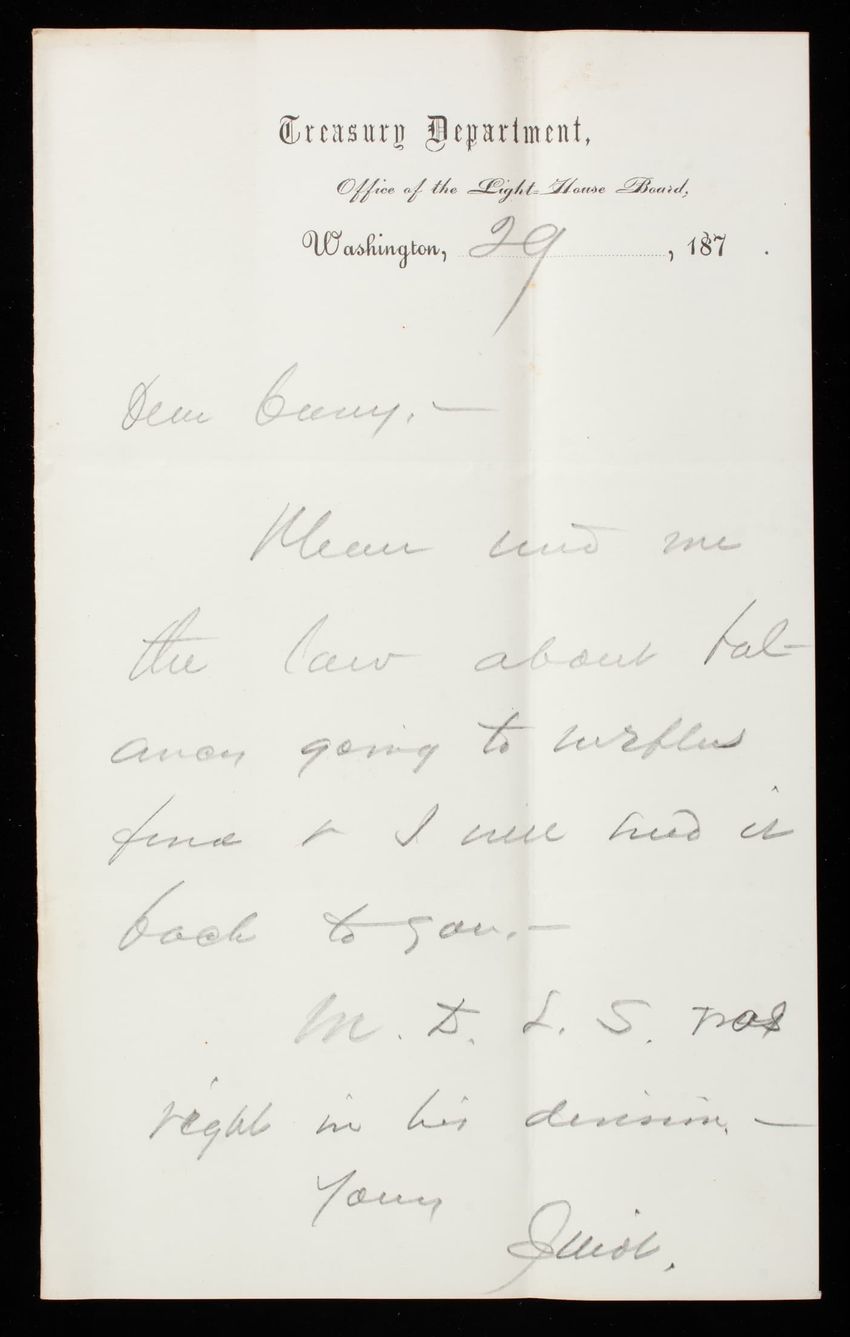 Treasury Department,
Office of the Light-House Board,
Washington, 29, 187 .
Dear Casey. —
Please send me
the law about bal-
ances going to surplus
fund & I will send it
back to you. —
M. D. L. S. was
right in his decision. —
Yours
Elliot.